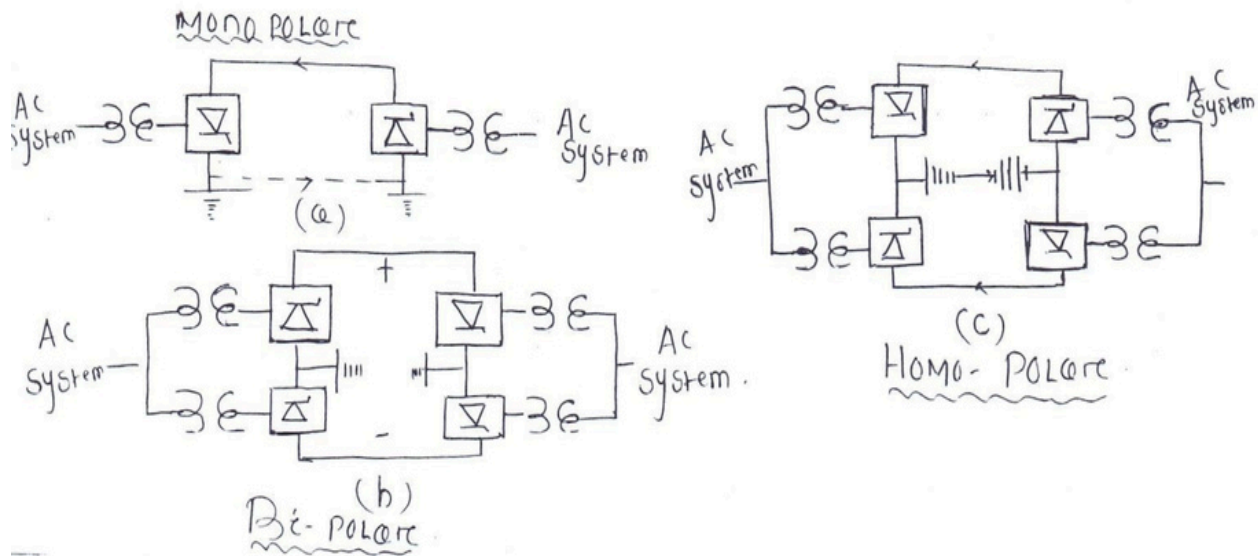 Mono POLare
AC
System
AC
System
(a)
AC
System
+
-
AC
System.
(b)
Bi-POLare
AC
System
AC
System
(C)
HOMO-POLare.